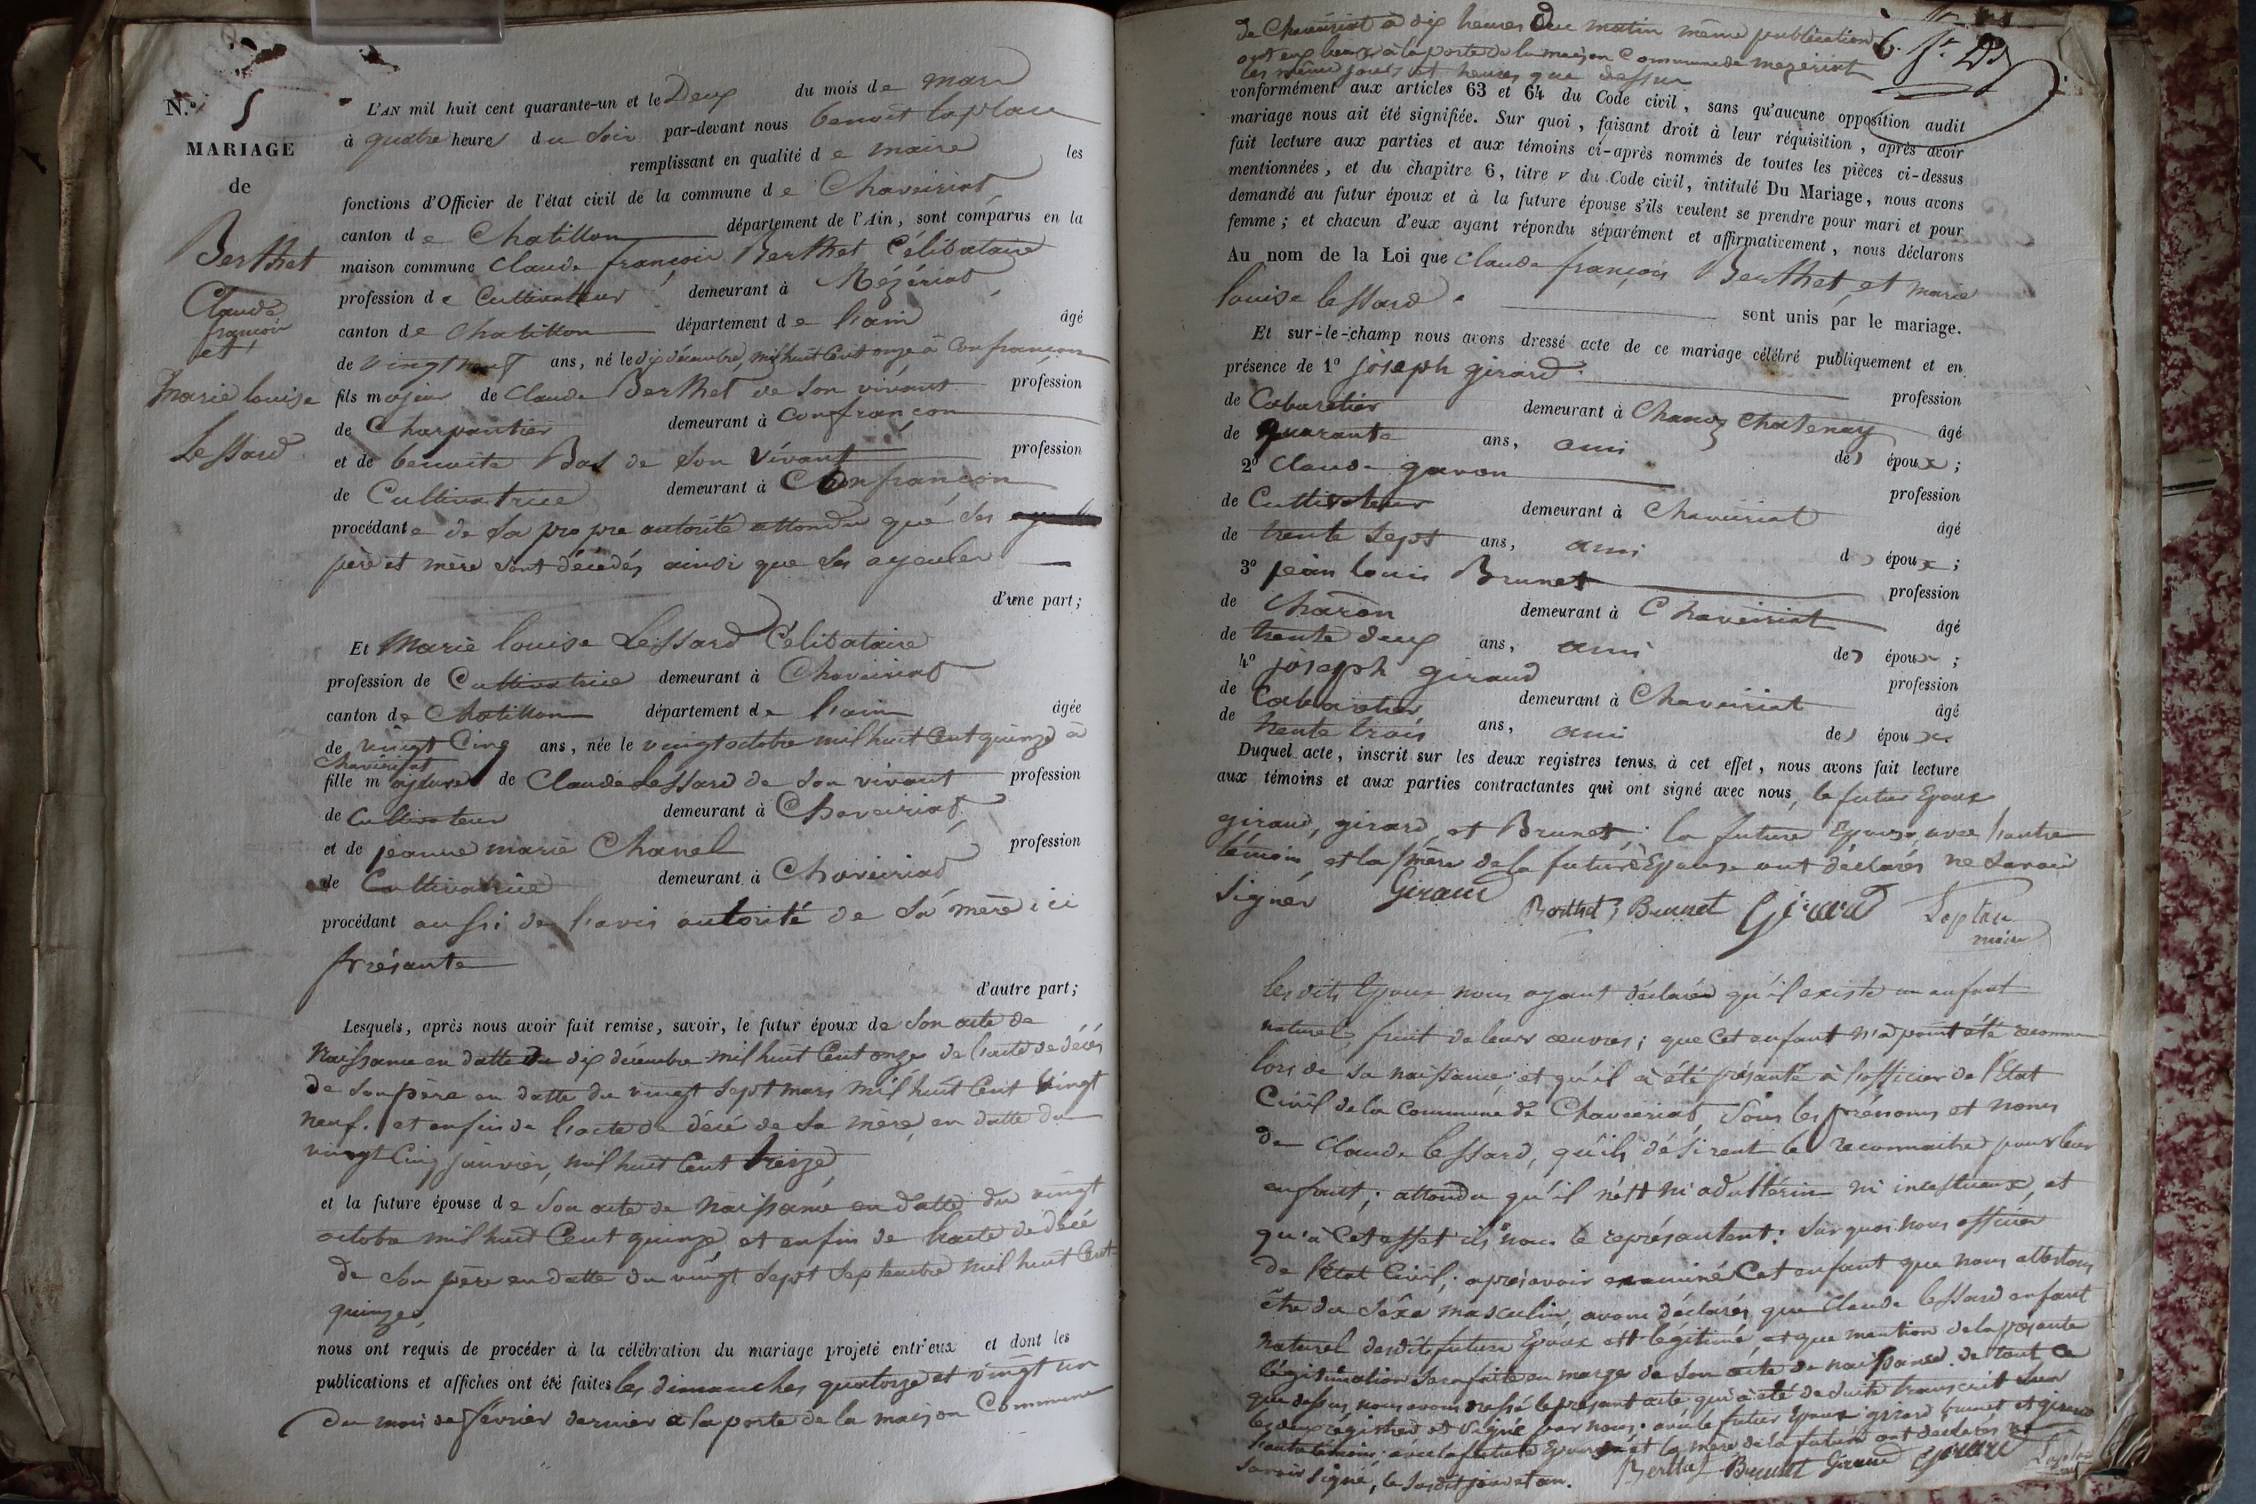 N.º 5
MARIAGE
de
Berthet
Claude
françois
et
Marie louise
Lessard
L'AN mil huit cent quarante-un et le Deux du mois de mars
à quatre heures du soir par-devant nous benoit laplace
remplissant en qualité de maire les
fonctions d'Officier de l'état civil de la commune de Chaveiriat
canton de Chatillon département de l'Ain, sont comparus en la
maison commune Claude françois Berthet Célibataire
profession de Cultivateur demeurant à Mézériat
canton de Chatillon département de l'ain âgé
de vingt neuf ans, né le dix décembre mil huit Cent onze à Confrançon
fils majeur de Claude Berthet de son vivant profession
de Charpentier demeurant à Confrançon
et de benoite Bas de son vivant profession
de Cultivatrice demeurant à Confrançon
procédante de sa propre autorité attendu que ses
père et mère sont décédés ainsi que ses ayeules
d'une part;
Et Marie louise Lessard Célibataire
profession de Cultivatrice demeurant à Chaveiriat
canton de Chatillon département de l'ain âgée
de vingt Cinq ans, née le vingt octobre mil huit Cent quinze à
Chaveiriat
fille majeure de Claude Lessard de son vivant profession
de Cultivateur demeurant à Chaveiriat
et de jeanne marie Chanel profession
de Cultivatrice demeurant à Chaveiriat
procédant aussi de l'avis autorité de sa mère ici
présante
d'autre part;
Lesquels, après nous avoir fait remise, savoir, le futur époux de son acte de
Naissance en datte du dix décembre mil huit Cent onze de l'acte de décés
de son père en datte du vingt sept mars mil huit Cent vingt
neuf. et enfin de l'acte de décé de sa mère, en datte du
vingt Cinq janvier, mil huit Cent treize
et la future épouse de son acte de naissance en datte du vingt
octobre mil huit Cent quinze, et enfin de l'acte de décé
de son père en datte du vingt sept septembre mil huit Cent
quinze,
nous ont requis de procéder à la célébration du mariage projeté entr'eux et dont les
publications et affiches ont été faites les dimanches quatorze et vingt un
du mois de février dernier à la porte de la maison Commune
de Chaveiriat à dix heures du matin même publications
ont eux lieux à la porte de la maison Commune de mezeriat
les même jours et heures que dessus
conformément aux articles 63 et 64 du Code civil, sans qu'aucune opposition audit
mariage nous ait été signifiée. Sur quoi, faisant droit à leur réquisition, après avoir
fait lecture aux parties et aux témoins ci-après nommés de toutes les pièces ci-dessus
mentionnées, et du chapitre 6, titre v du Code civil, intitulé Du Mariage, nous avons
demandé au futur époux et à la future épouse s'ils veulent se prendre pour mari et pour
femme; et chacun d'eux ayant répondu séparément et affirmativement, nous déclarons
Au nom de la Loi que Claude françois Berthet, et marie
louise lessard sont unis par le mariage.
Et sur-le-champ nous avons dressé acte de ce mariage célébré publiquement et en
présence de 1º joseph girard profession
de Cabaretier demeurant à Chanoz Chatenay âgé
de quarante ans, ami des époux;
2º Claude gavon profession
de Cultivateur demeurant à Chaveiriat âgé
de trente sept ans, ami ds époux;
3º jean louis Brunet profession
de Charon demeurant à Chaveiriat âgé
de trente deux ans, ami des époux;
4º joseph giraud profession
de Cabaretier demeurant à Chaveiriat âgé
de trente trois ans, ami des époux.
Duquel acte, inscrit sur les deux registres tenus à cet effet, nous avons fait lecture
aux témoins et aux parties contractantes qui ont signé avec nous, le futur Epoux
giraud, girard, et Brunet; la future Epouse, avec l'autre
témoin, et la mère de la future Epouse ont déclarés ne savoir
signer Giraud Berthet Brunet Girard Laplace
maire
les dits Epoux nous ayant déclarés qu'il existe un enfant
naturel fruit de leurs œuvres; que Cet enfant n'a point été reconnu
lors de sa naissance, et qu'il a été présanté à l'officier de l'Etat
Civil de la Commune de Chaveiriat, sous les prénoms et noms
de Claude lessard, qu'ils désirent le reconnaitre pour leur
enfant; attendu qu'il n'est ni adultérin ni incestueux, et
qu'à Cet effet ils nous le représantent: sur quoi nous officier
de l'Etat Civil, après avoir examiné Cet enfant que nous attestons
être du séxe masculin, avons déclarés que Claude lessard enfant
naturel desdits future Epoux est légitimé, et que mention de la présante
légitimation sera faite en marge de son acte de naissance. de tout Ce
que dessus nous avons dressé le présant acte qui a été de suite transcrit sur
les deux régistres et signé par nous: avec le futur Epoux girard brunet et giraud
l'autre témoin, avec la future Epouse et la mère de la future ont déclarés ne
savoir signé, le susdit jour et an. Berthet Brunet Giraud Girard Laplace